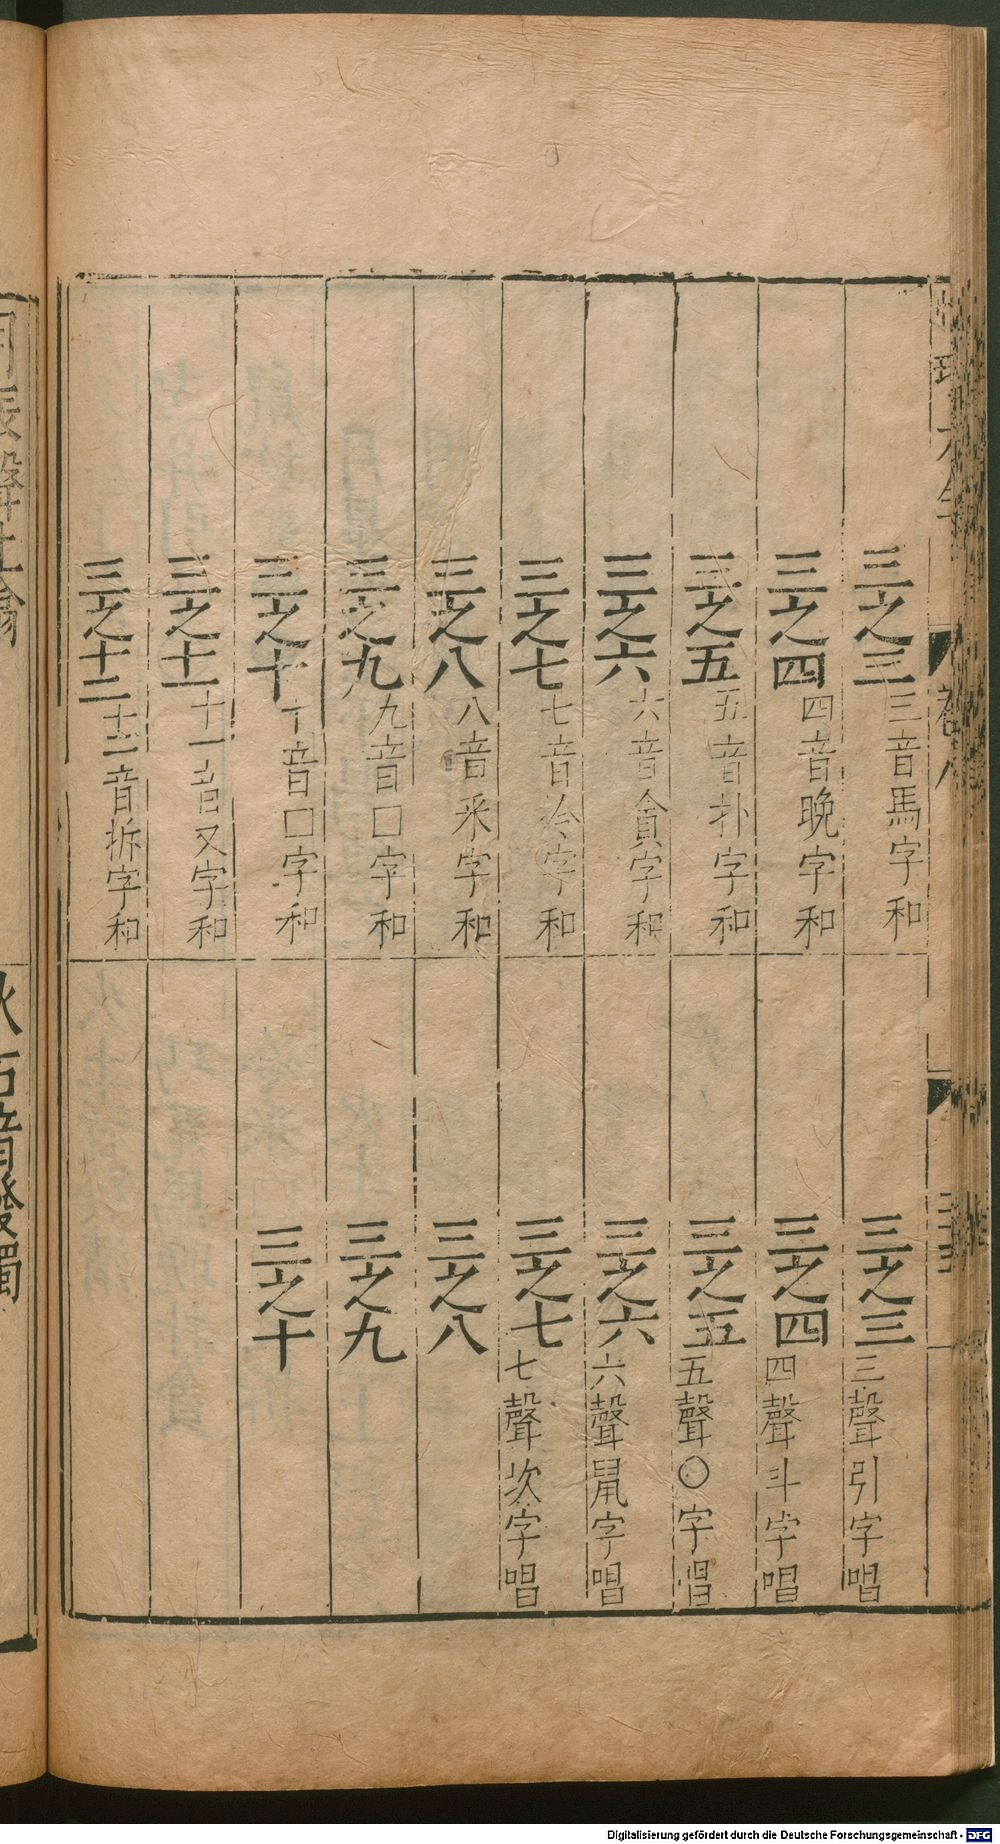 三之三 三音馬字和
三之四 四音晚字和
三之五 五音扑字和
三之六 六音貪字和
三之七 七音字和
三之八 八音釆字和
三之九 九音口字和
三之十 十音口字和
三之十一 十一音叉字和
三之十二 十二音拆字和
三之三 三聲引字唱
三之四 四聲斗字唱
三之五 五聲〇字唱
三之六 六聲鼠字唱
三之七 七聲次字唱
三之八
三之九
三之十
火石音發濁
Digitalisierung gefördert durch die Deutsche Forschungsgemeinschaft - DFG